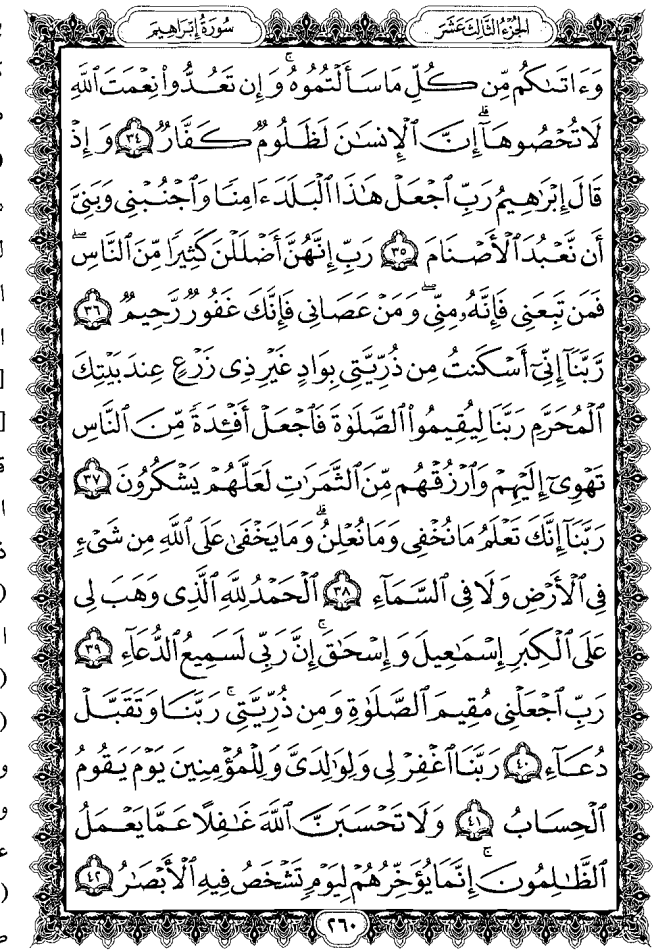 الجزء الثالث عشر
سورة إبراهيم
وَءَاتَىٰكُم مِّن كُلِّ مَا سَأَلْتُمُوهُ ۚ وَإِن تَعُدُّوا۟ نِعْمَتَ ٱللَّهِ
لَا تُحْصُوهَآ ۗ إِنَّ ٱلْإِنسَـٰنَ لَظَلُومٌ كَفَّارٌ ٣٤ وَإِذْ
قَالَ إِبْرَٰهِيمُ رَبِّ ٱجْعَلْ هَـٰذَا ٱلْبَلَدَ ءَامِنًا وَٱجْنُبْنِى وَبَنِىَّ
أَن نَّعْبُدَ ٱلْأَصْنَامَ ٣٥ رَبِّ إِنَّهُنَّ أَضْلَلْنَ كَثِيرًا مِّنَ ٱلنَّاسِ ۖ
فَمَن تَبِعَنِى فَإِنَّهُۥ مِنِّى ۖ وَمَنْ عَصَانِى فَإِنَّكَ غَفُورٌ رَّحِيمٌ ٣٦
رَّبَّنَآ إِنِّىٓ أَسْكَنتُ مِن ذُرِّيَّتِى بِوَادٍ غَيْرِ ذِى زَرْعٍ عِندَ بَيْتِكَ
ٱلْمُحَرَّمِ رَبَّنَا لِيُقِيمُوا۟ ٱلصَّلَوٰةَ فَٱجْعَلْ أَفْـِٔدَةً مِّنَ ٱلنَّاسِ
تَهْوِىٓ إِلَيْهِمْ وَٱرْزُقْهُم مِّنَ ٱلثَّمَرَٰتِ لَعَلَّهُمْ يَشْكُرُونَ ٣٧
رَبَّنَآ إِنَّكَ تَعْلَمُ مَا نُخْفِى وَمَا نُعْلِنُ ۗ وَمَا يَخْفَىٰ عَلَى ٱللَّهِ مِن شَىْءٍ
فِى ٱلْأَرْضِ وَلَا فِى ٱلسَّمَآءِ ٣٨ ٱلْحَمْدُ لِلَّهِ ٱلَّذِى وَهَبَ لِى
عَلَى ٱلْكِبَرِ إِسْمَـٰعِيلَ وَإِسْحَـٰقَ ۚ إِنَّ رَبِّى لَسَمِيعُ ٱلدُّعَآءِ ٣٩
رَبِّ ٱجْعَلْنِى مُقِيمَ ٱلصَّلَوٰةِ وَمِن ذُرِّيَّتِى ۚ رَبَّنَا وَتَقَبَّلْ
دُعَآءِ ٤٠ رَبَّنَا ٱغْفِرْ لِى وَلِوَٰلِدَىَّ وَلِلْمُؤْمِنِينَ يَوْمَ يَقُومُ
ٱلْحِسَابُ ٤١ وَلَا تَحْسَبَنَّ ٱللَّهَ غَـٰفِلًا عَمَّا يَعْمَلُ
ٱلظَّـٰلِمُونَ ۚ إِنَّمَا يُؤَخِّرُهُمْ لِيَوْمٍ تَشْخَصُ فِيهِ ٱلْأَبْصَـٰرُ ٤٢
٢٦٠